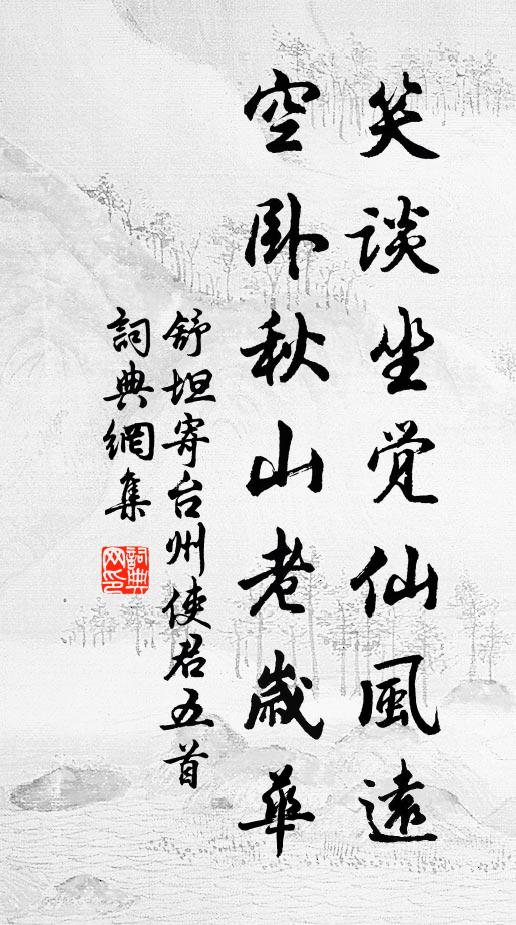 笑談坐觉仙風遠
空卧秋山老歲華
舒坦寄台州使君五首
詞典網集
詞典
网印